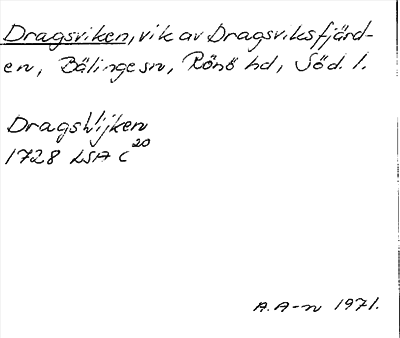 Dragsviken, vik av Dragsviksfjärd-
en, Bälinge sn, Rönö hd, Söd. l.
Dragswijken
1728 LSA C 20
A. A-n 1971.